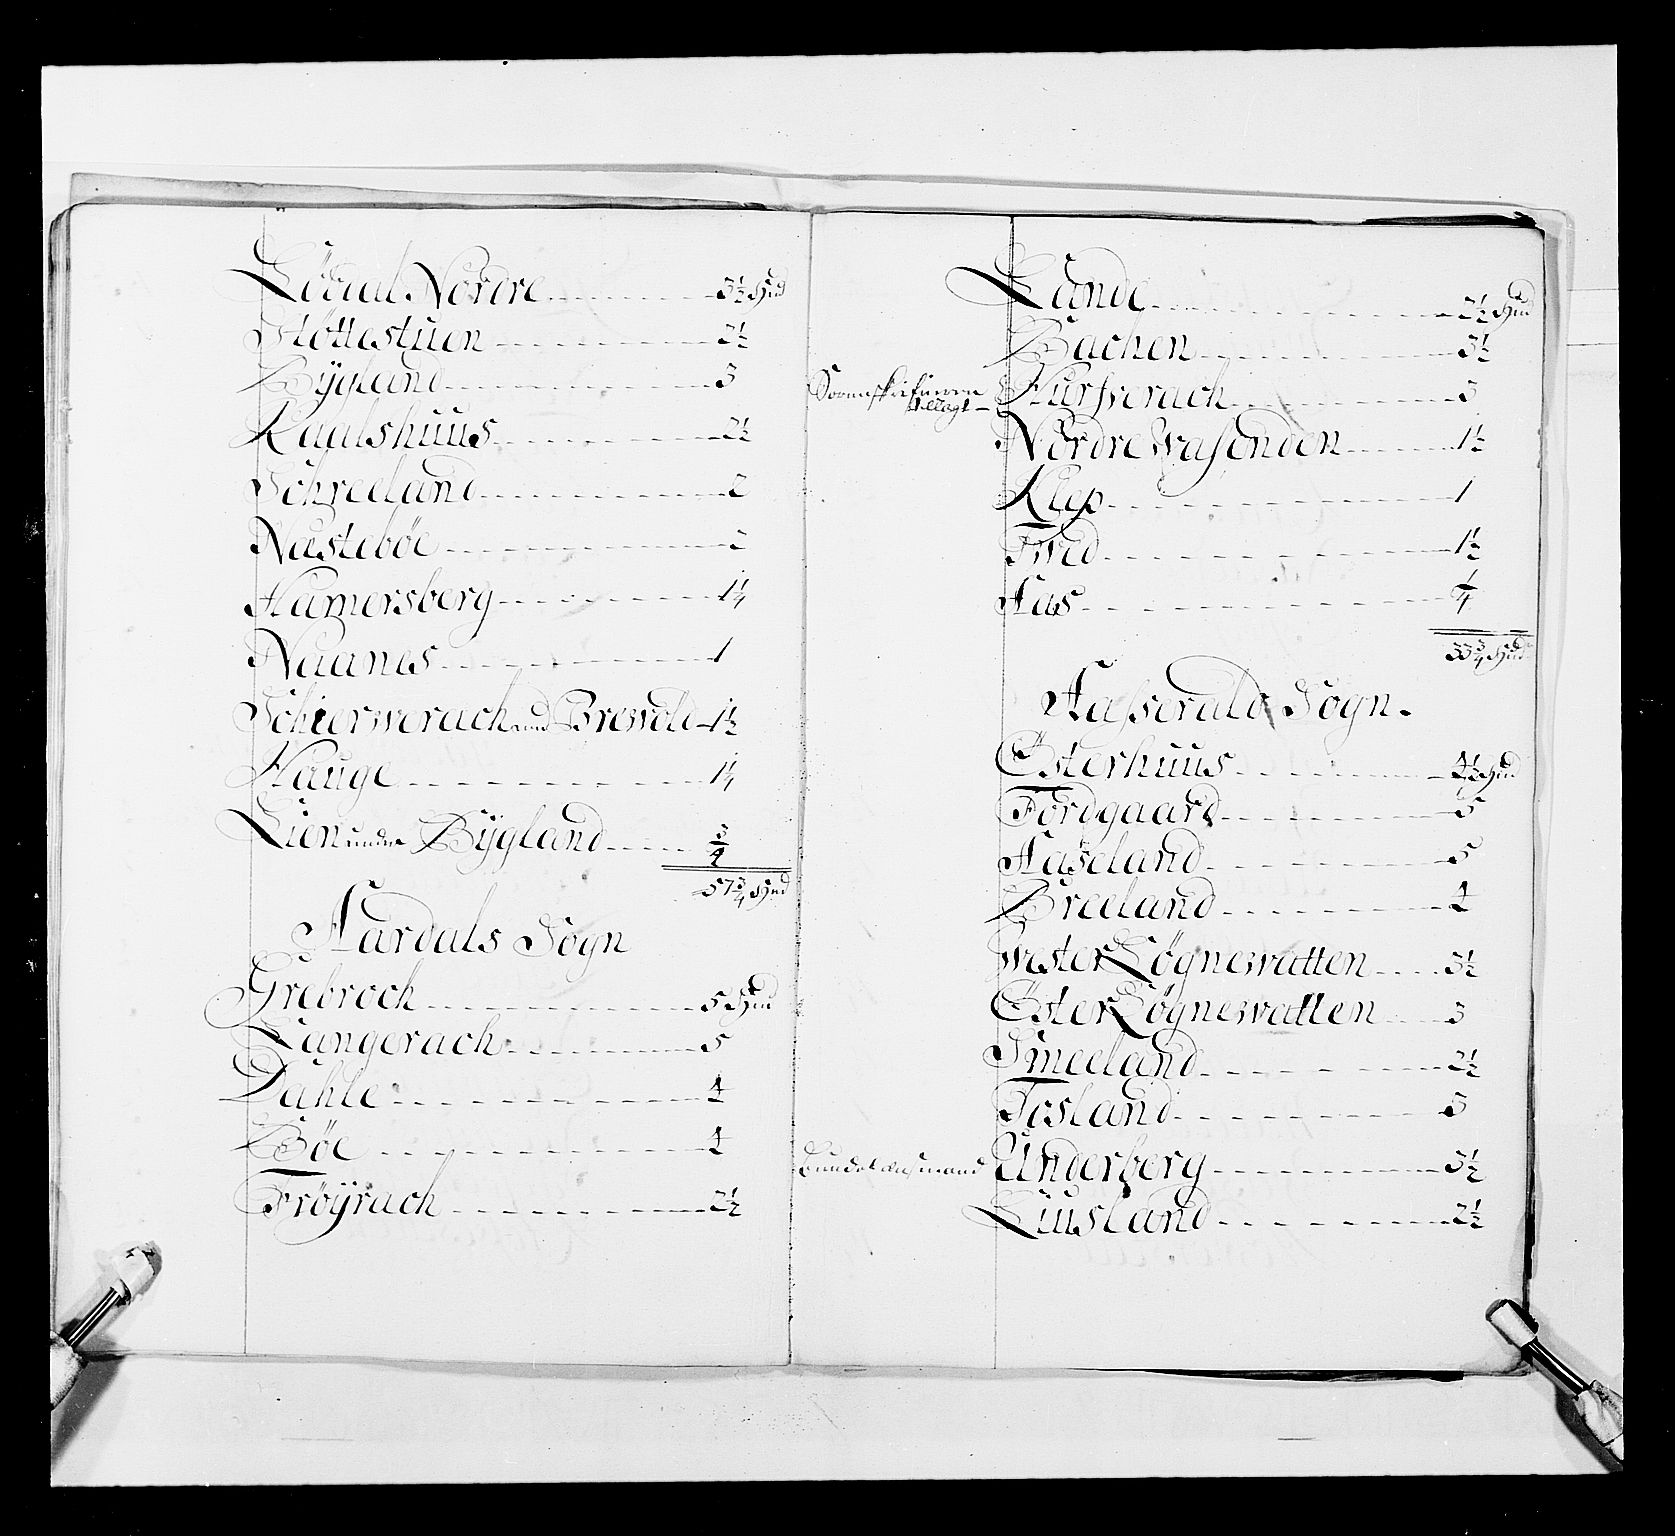 Lödral Nordre 3½ Hud
Støttestuen 2½
Bÿgland 3
Kaalshuus 2½
Schreeland 2
Næstebøe 2
Hamersberg 1¼
Naanes 1
Schierwerach und Brewold 1½
Hauge 1¼
Lien under Bÿgland ¾
57¾ Hud
Aardals Sogn
Grebroch 5 Hud
Langerach 5
Dahle 4
Bøe 4
Frøÿrach 2½
Lande 2½ Hud
Bachen 3½
Sorenskrifveren tillagt Hurfverach 3
Nordre Wasenden 1½
Klep 1
Twed 1½
Aas ¼
33¾ Hud
Aasserals Sogn.
Österhuus 4½ Hud
Fordgaard 5
Aaseland 5
Breeland 4
Wester Løgnewatten 3½
Öster Løgnewatten 3
Smeeland 2½
Fosland 3
Bundelensmand Underberg 3½
Liusland 2½